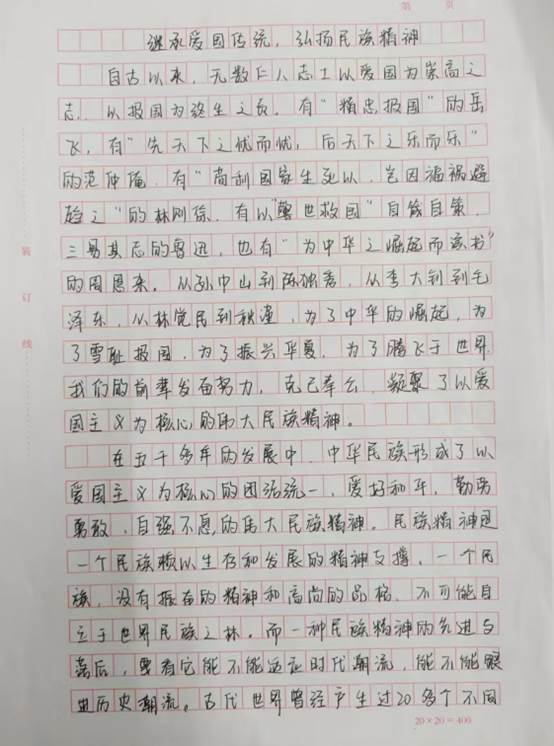 第 页
继承爱国传统，弘扬民族精神
自古以来，无数仁人志士以爱国为崇高之
志，以报国为终生之负。有“精忠报国”的岳
飞，有“先天下之忧而忧，后天下之乐而乐”
的范仲淹，有“苟利国家生死以，岂因福祸避
趋之”的林则徐，有以“医世救国”自策，
三易其志的鲁迅，也有“为中华之崛起而读书”
的周恩来。从孙中山到陈独秀，从李大钊到毛
泽东，从林觉民到秋瑾，为了中华的崛起，为
了雪耻报国，为了振兴华夏，为了腾飞于世界
我们的前辈发奋努力，克己奉公，凝聚了以爱
国主义为核心的伟大民族精神。
在五千多年的发展中，中华民族形成了以
爱国主义为核心的团结统一，爱好和平，勤劳
勇敢，自强不息的伟大民族精神。民族精神是
一个民族赖以生存和发展的精神支撑。一个民
族，没有振奋的精神和高尚的品格，不可能自
立于世界民族之林。而一种民族精神的先进与
落后，要看它能不能适应时代潮流，能不能顺
历史潮流。古代世界曾经产生过20多个不同
20×20=400
装
订
线